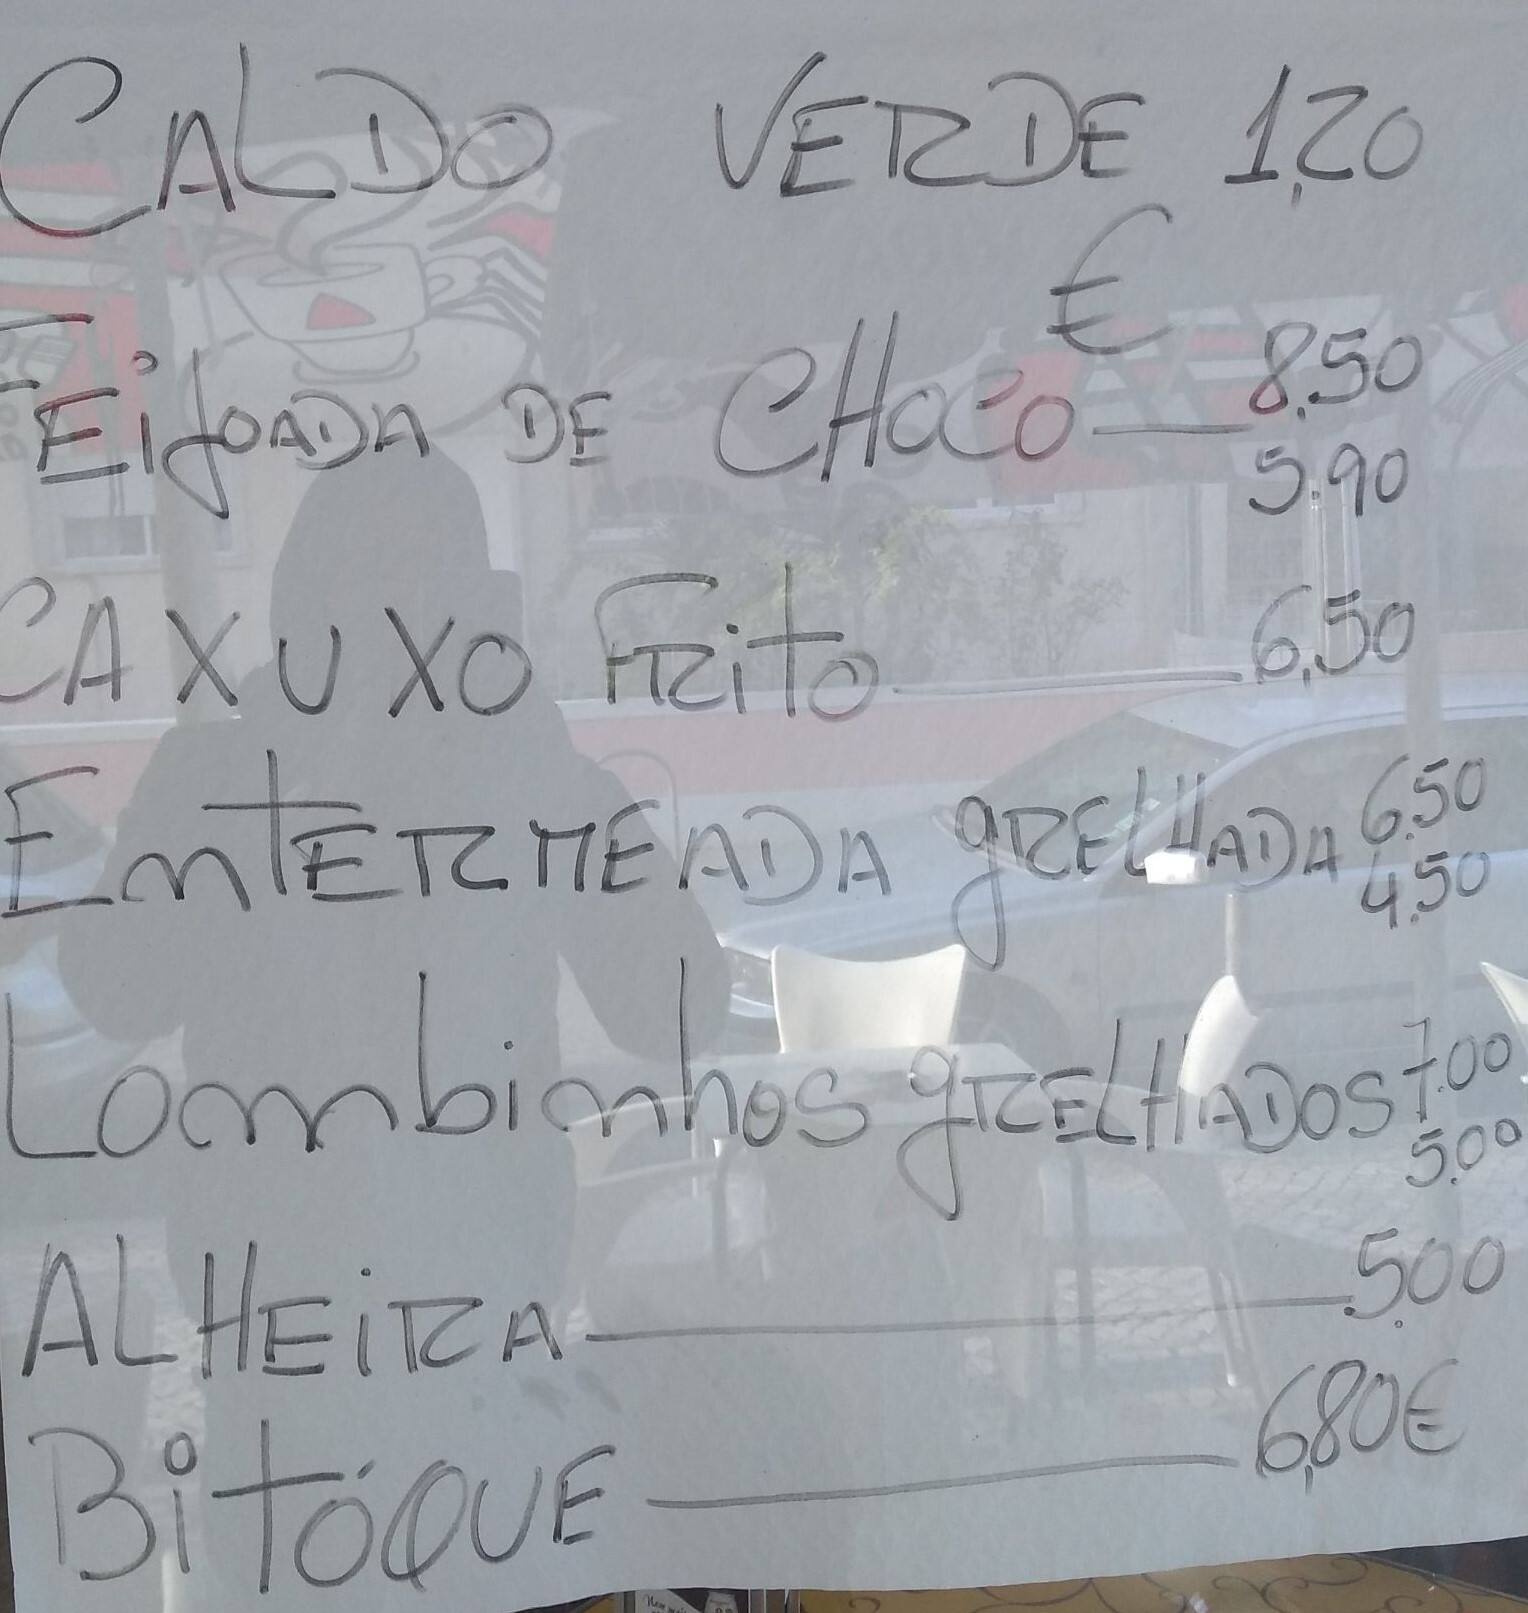 CALDO VERDE 1,20
€
FEijOADA DE CHOCO — 8,50
5.90
CAXUXO FRito — 6,50
EntERMEADA gRELHADA 6.50
4.50
Lombinhos gRELHADOS 7.00
5.00
ALHEiRA — 5.00
BitóQUE — 6,80€